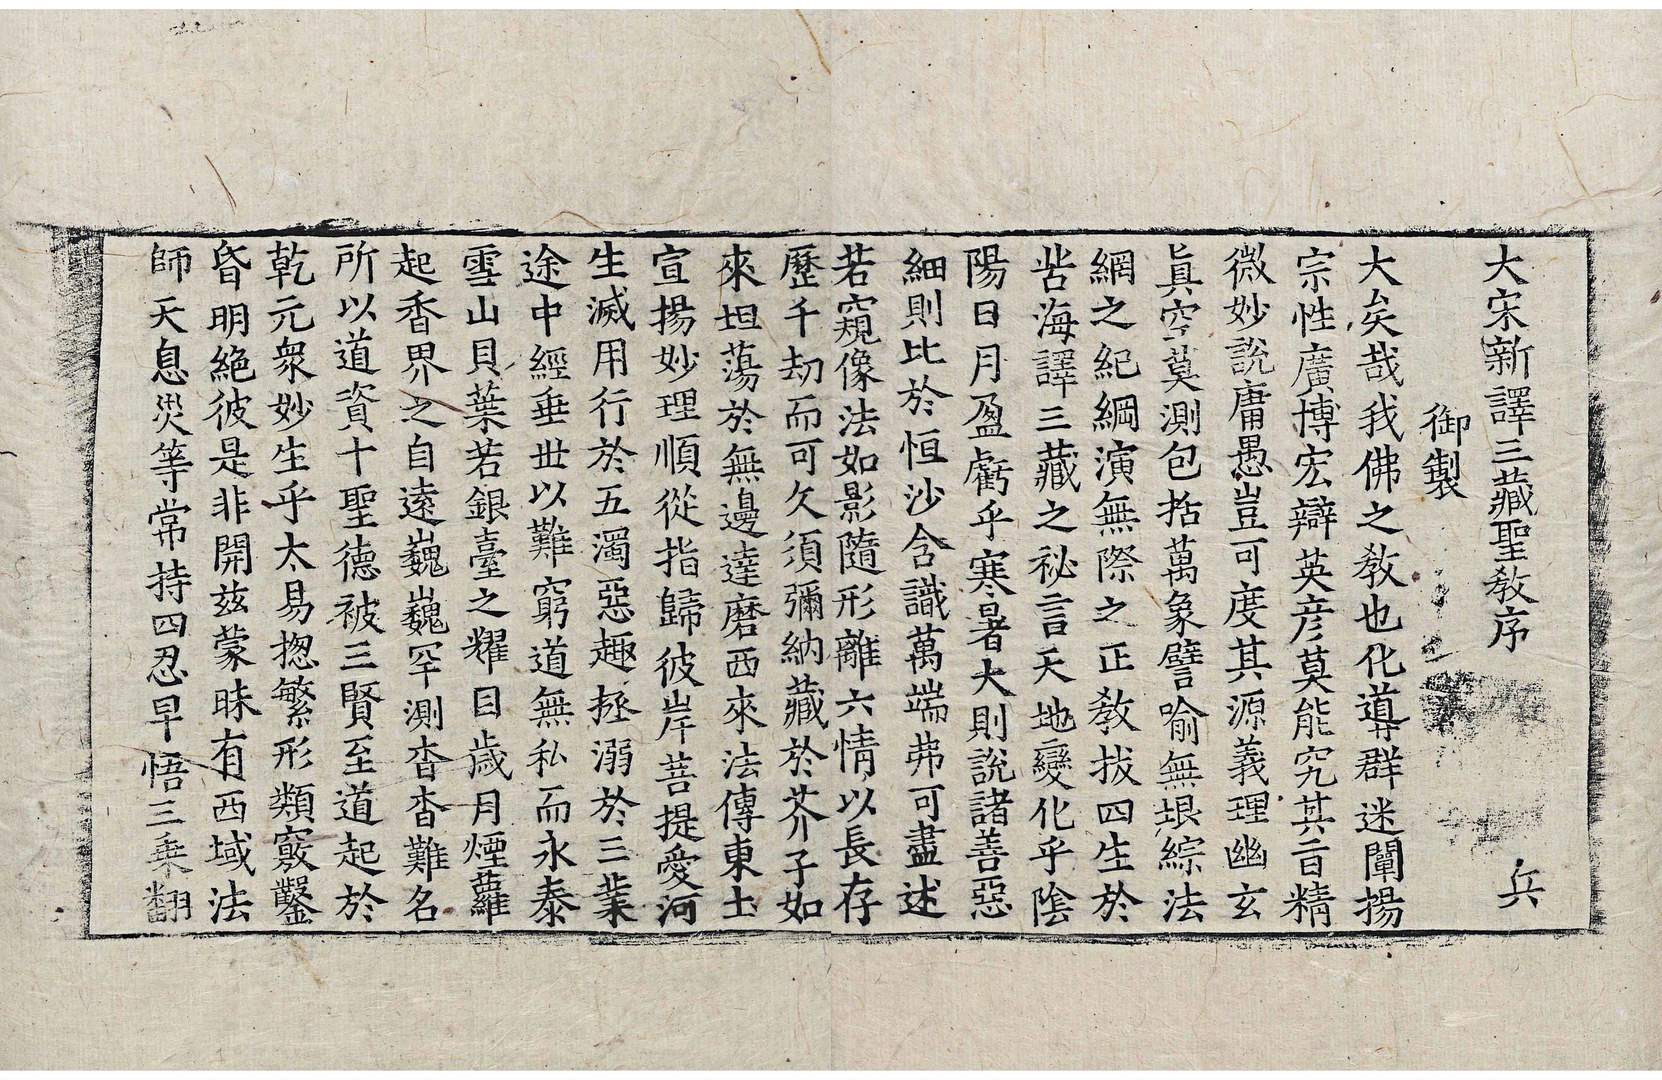 大宋新譯三藏聖教序 兵
御製
大矣哉我佛之教也化導群迷闡揚
宗性廣博宏辯英彦莫能究其旨精
微妙說庸愚豈可度其源義理幽玄
眞空莫測包括萬象譬喻無垠綜法
網之紀綱演無際之正教拔四生於
苦海譯三藏之祕言天地變化乎陰
陽日月盈虧乎寒暑大則說諸善惡
細則比於恒沙含識萬端弗可盡述
若窺像法如影隨形離六情以長存
歷千劫而可久須彌納藏於芥子如
來坦蕩於無邊達磨西來法傳東土
宣揚妙理順從指歸彼岸菩提愛河
生滅用行於五濁惡趣拯溺於三業
途中經垂世以難窮道無私而永泰
雪山貝葉若銀臺之耀目歲月煙蘿
起香界之自遠巍巍罕測杳杳難名
所以道資十聖德被三賢至道起於
乾元衆妙生乎太易揔繁形類竅鑿
昏明絶彼是非開兹蒙昧有西域法
師天息災等常持四忍早悟三乘翻